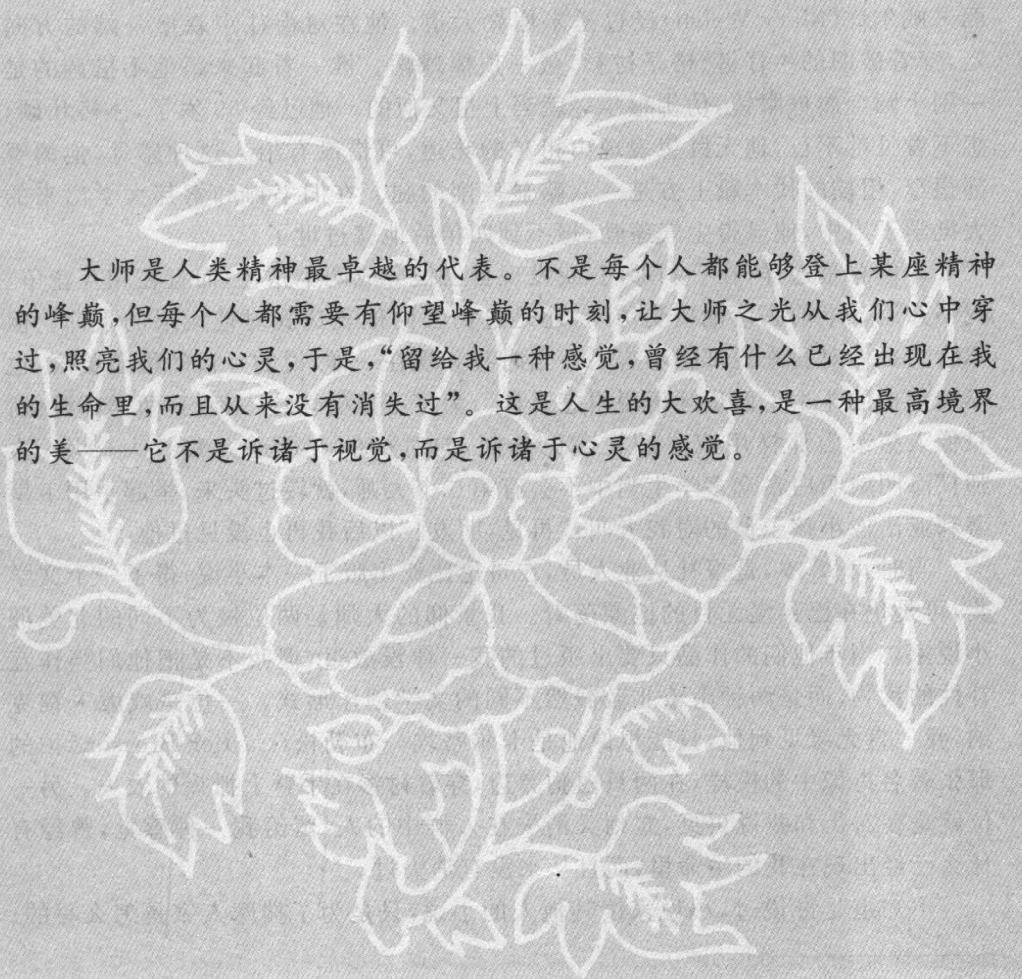 大师是人类精神最卓越的代表。不是每个人都能够登上某座精神
的峰巅，但每个人都需要有仰望峰巅的时刻，让大师之光从我们心中穿
过，照亮我们的心灵，于是，“留给我一种感觉，曾经有什么已经出现在我
的生命里，而且从来没有消失过”。这是人生的大欢喜，是一种最高境界
的美——它不是诉诸于视觉，而是诉诸于心灵的感觉。